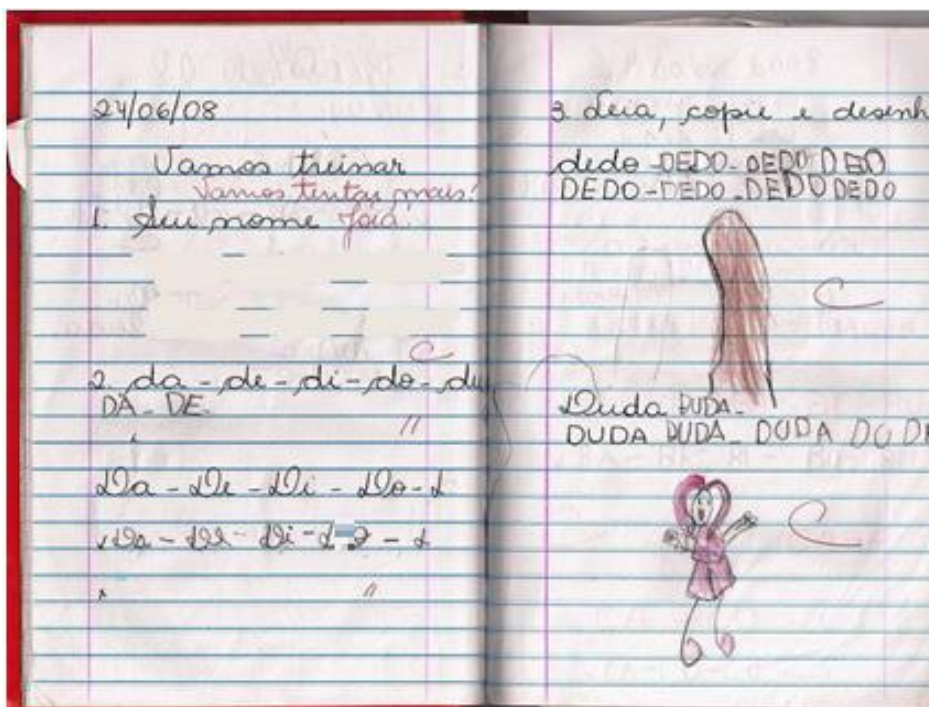 24/06/08
Vamos treinar
Vamos tentar mais!
1. Seu nome Joia!
C
2. da - de - di - do - du
DA - DE -
Da - De - Di - Do - D
Da - De - Di - D
3. Leia, copie e desenh
dedo - DEDO - DEDO DEDO
DEDO - DEDO - DEDO DEDO
C
Duda DUDA -
DUDA DUDA - DUDA DUDA
C